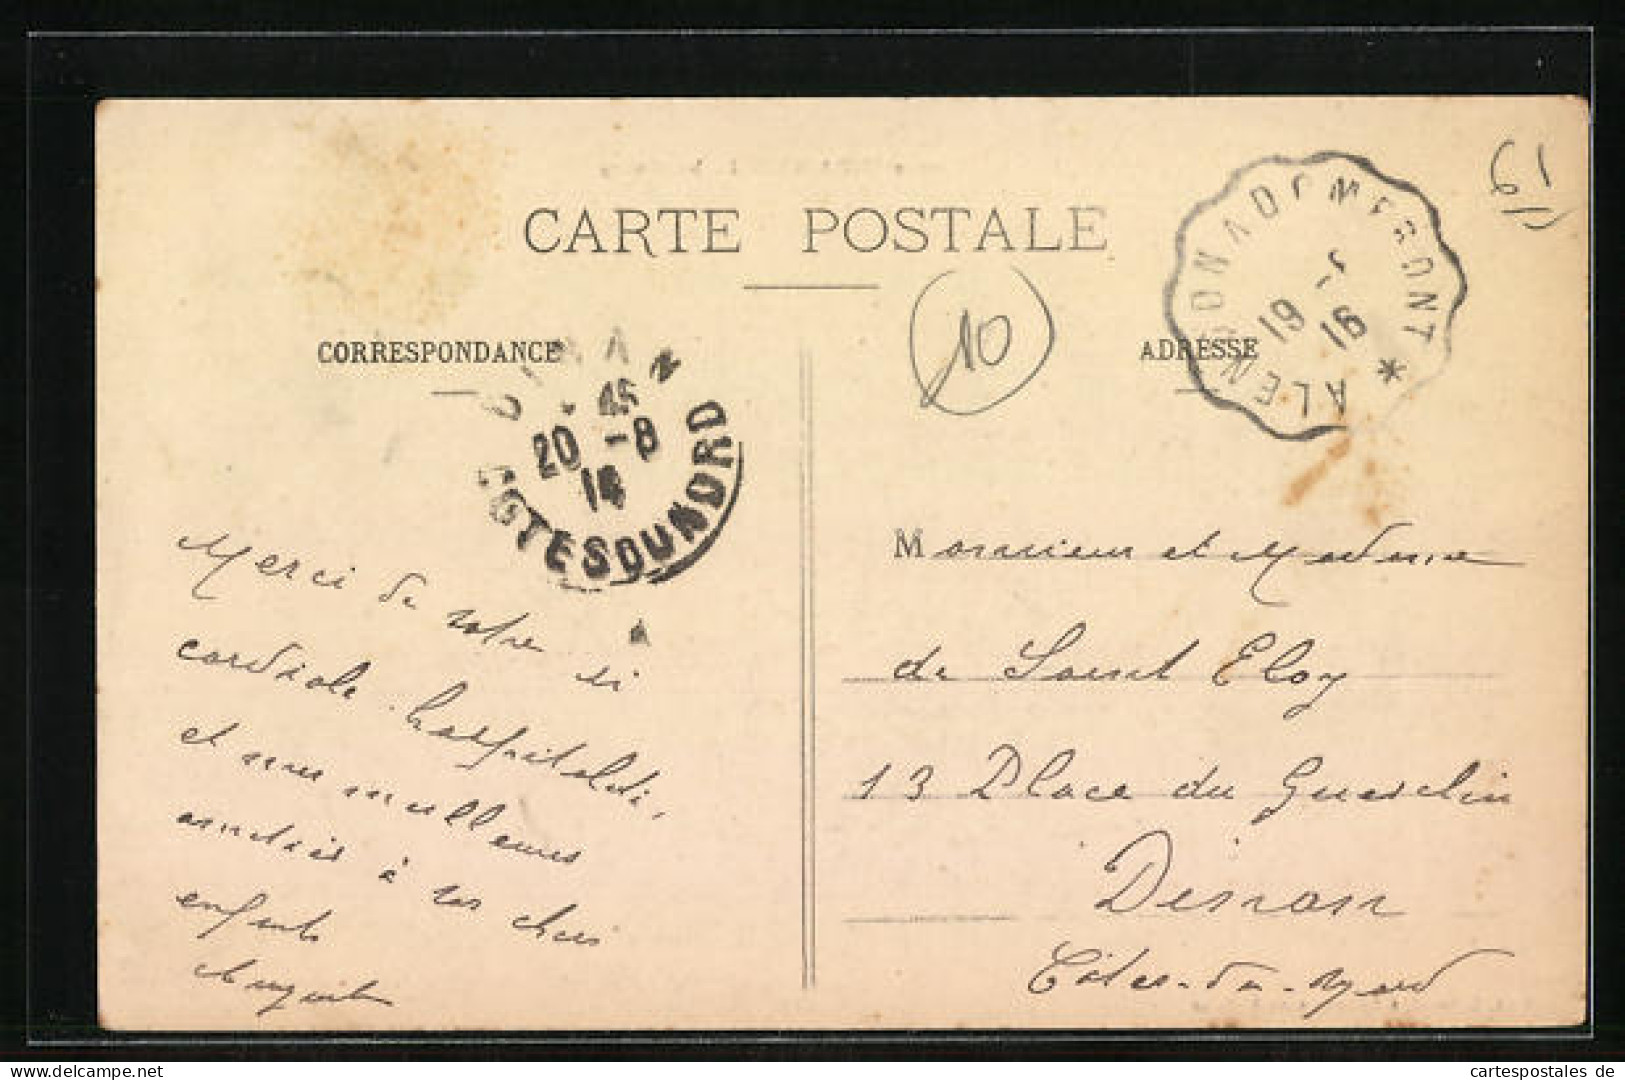 CARTE POSTALE
61
10
CORRESPONDANCE
ADRESSE
ALENÇON A DOMFRONT
19
16
DINAN
45
20 -8
14
COTES DU NORD
Merci de votre si
cordiale hospitalité,
et nos meilleures
amitiés à vos chers
enfants
Monsieur et Madame
de Saint Eloy
13 Place du Guesclin
Dinan
Côtes-du-Nord
delcampe.net
cartespostales de